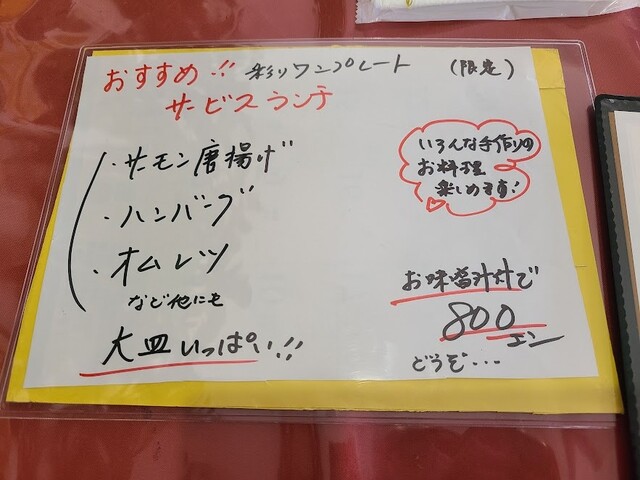 おすすめ!! 彩りワンプレート (限定)
サービスランチ
・サーモン唐揚げ
・ハンバーグ
・オムレツ
など他にも
大皿いっぱい!!
いろんな手作りの
お料理
楽しめます!
お味噌汁付で
800エン
どうぞ・・・